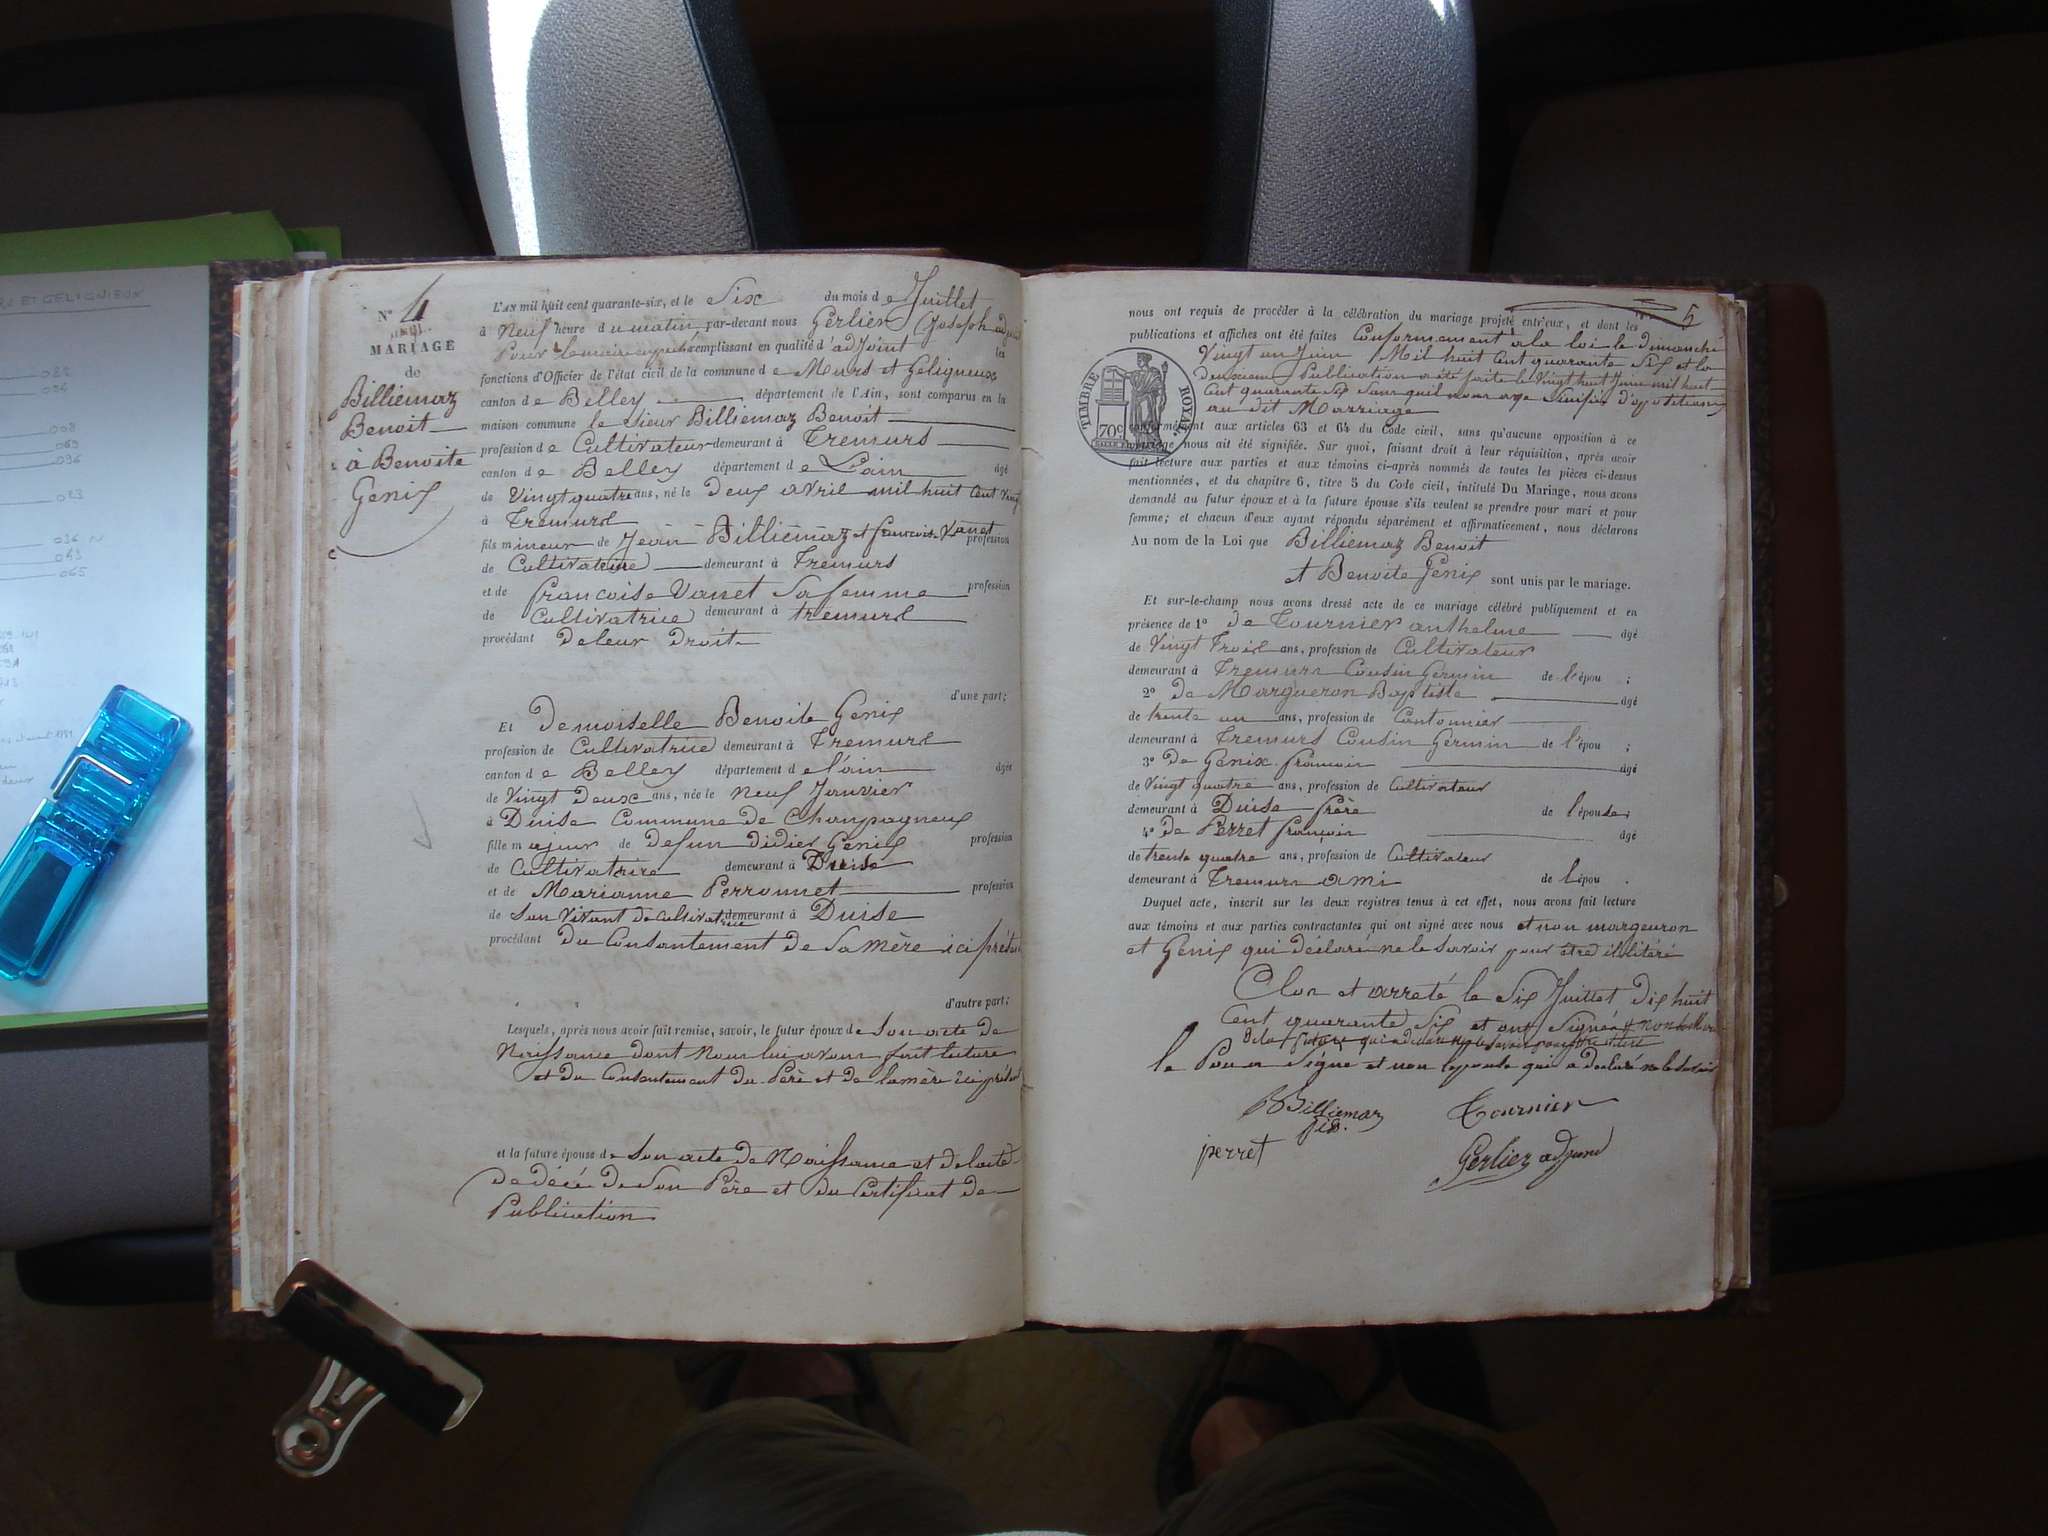 RS ET GELIGNIEUX
N° 4
MARIAGE
de
Billiemaz
Benoit
à Benoite
Genix
L'AN mil huit cent quarante-six, et le Six du mois de Juillet
à Neuf heure du matin, par-devant nous Gerlier Joseph
Pour le maire remplissant en qualité d'adjoint les
fonctions d'Officier de l'état civil de la commune de Murs et Géligneux
canton de Belley département de l'Ain, sont comparus en la
maison commune le Sieur Billiemaz Benoit
profession de Cultivateur demeurant à Tremurs
canton de Belley département de L'ain âgé
de Vingt quatre ans, né le Deux avril mil huit Cent Vingt
à Tremurs
fils mineur de Jean Billiemaz et francoise Vanet profession
de Cultivateur demeurant à Tremurs
et de francoise Vanet Sa femme profession
de Cultivatrice demeurant à tremurs
procédant de leur Droit
d'une part;
Et Demoiselle Benoite Genix
profession de Cultivatrice demeurant à Tremurs
canton de Belley département de l'ain âgée
de Vingt Deux ans, née le Neuf Janvier
à Duise Commune de Champagneux
fille majeur de Defun Didier Genix profession
de Cultivatrice demeurant à Duise
et de Marianne Perronnet profession
de Son Vivant de Cultivatrice demeurant à Duise
procédant du Consantement de Sa mère ici
d'autre part;
Lesquels, après nous avoir fait remise, savoir, le futur époux de Son acte de
Naissance dont Nous lui avons fait lecture
et du Consantement du Père et de la mère ici
et la future épouse de Son acte de Naissance et de l'acte
de décé de Son Père et du Certificat de
Publication
5
nous ont requis de procéder à la célébration du mariage projeté entr'eux, et dont les
publications et affiches ont été faites Conformement à la loi le dimanche
Vingt un Juin Mil huit Cent quarante Six et la
deuxieme Publication a été faite le Vingt huit Juin mil huit
Cent quarante Six Sans quil nous aye Sinifié d'oppositions
au dit Marriage
TIMBRE ROYAL
70c
conformément aux articles 63 et 64 du Code civil, sans qu'aucune opposition à ce
mariage nous ait été signifiée. Sur quoi, faisant droit à leur réquisition, après avoir
fait lecture aux parties et aux témoins ci-après nommés de toutes les pièces ci-dessus
mentionnées, et du chapitre 6, titre 5 du Code civil, intitulé Du Mariage, nous avons
demandé au futur époux et à la future épouse s'ils veulent se prendre pour mari et pour
femme; et chacun d'eux ayant répondu séparément et affirmativement, nous déclarons
Au nom de la Loi que Billiemaz Benoit
et Benoite Genix sont unis par le mariage.
Et sur-le-champ nous avons dressé acte de ce mariage célébré publiquement et en
présence de 1° de Tournier anthelme âgé
de Vingt Trois ans, profession de Cultivateur
demeurant à Tremurs Cousin Germin de l'épou ;
2° de Margueron Baptiste âgé
de trente un ans, profession de Cantonnier
demeurant à Tremurs Cousin Germin de l'épou ;
3° de Génix françois âgé
de Vingt quatre ans, profession de Cultivateur
demeurant à Duise frère de l'épouse;
4° de Perret françois âgé
de trente quatre ans, profession de Cultivateur
demeurant à Tremurs ami de l'épou .
Duquel acte, inscrit sur les deux registres tenus à cet effet, nous avons fait lecture
aux témoins et aux parties contractantes qui ont signé avec nous et non margueron
et Genix qui déclaré ne le Savoir pour être illitéré
Clos et arreté le Six Juillet dix huit
Cent quarante Six et ont Signé
le Signe et non lepouse qui a declaré ne le Savoir
BBilliemaz
fis.
Tournier
perret
Gerlier adjoind